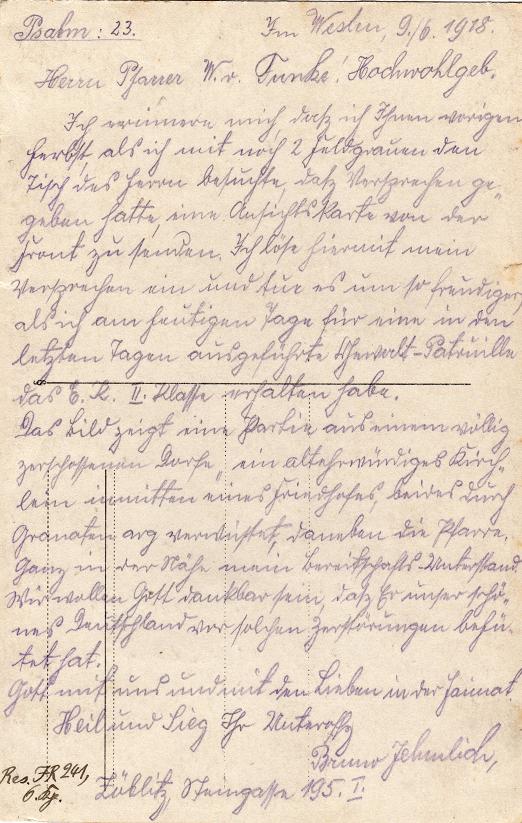 Psalm: 23.
Im Westen, 9./6. 1918.
Herrn Pfarrer W. v. Funke! Hochwohlgeb.
Ich erinnere mich, dasz ich Ihnen vorigen
Herbst, als ich mit noch 2 Feldgrauen den
Tisch des Herrn besuchte, dasz Versprechen ge-
geben hatte, eine Ansichtskarte von der
Front zu senden. Ich löse hiermit mein
Versprechen ein und tue es um so freudiger,
als ich am heutigen Tage für eine in den
letzten Tagen ausgeführte Gewalt-Patruille
das E. K. II. Klasse erhalten habe.
Das Bild zeigt eine Partie aus einem völlig
zerschossenen Dorfe, ein altehrwürdiges Kirch-
lein inmitten eines Friedhofes, beides durch
Granaten arg verwüstet, daneben die Pfarre.
Ganz in der Nähe mein Bereitschafts-Unterstand.
Wir wollen Gott dankbar sein, dasz Er unser schö-
nes Deutschland vor solchen Zerstörungen behü-
tet hat.
Gott mit uns und mit den Lieben in der Heimat
Heil und Sieg Ihr Unteroffz
Bruno Jehmlich,
Res. I.R 241,
6. Kp.
Zöblitz, Steingasse 195. I.